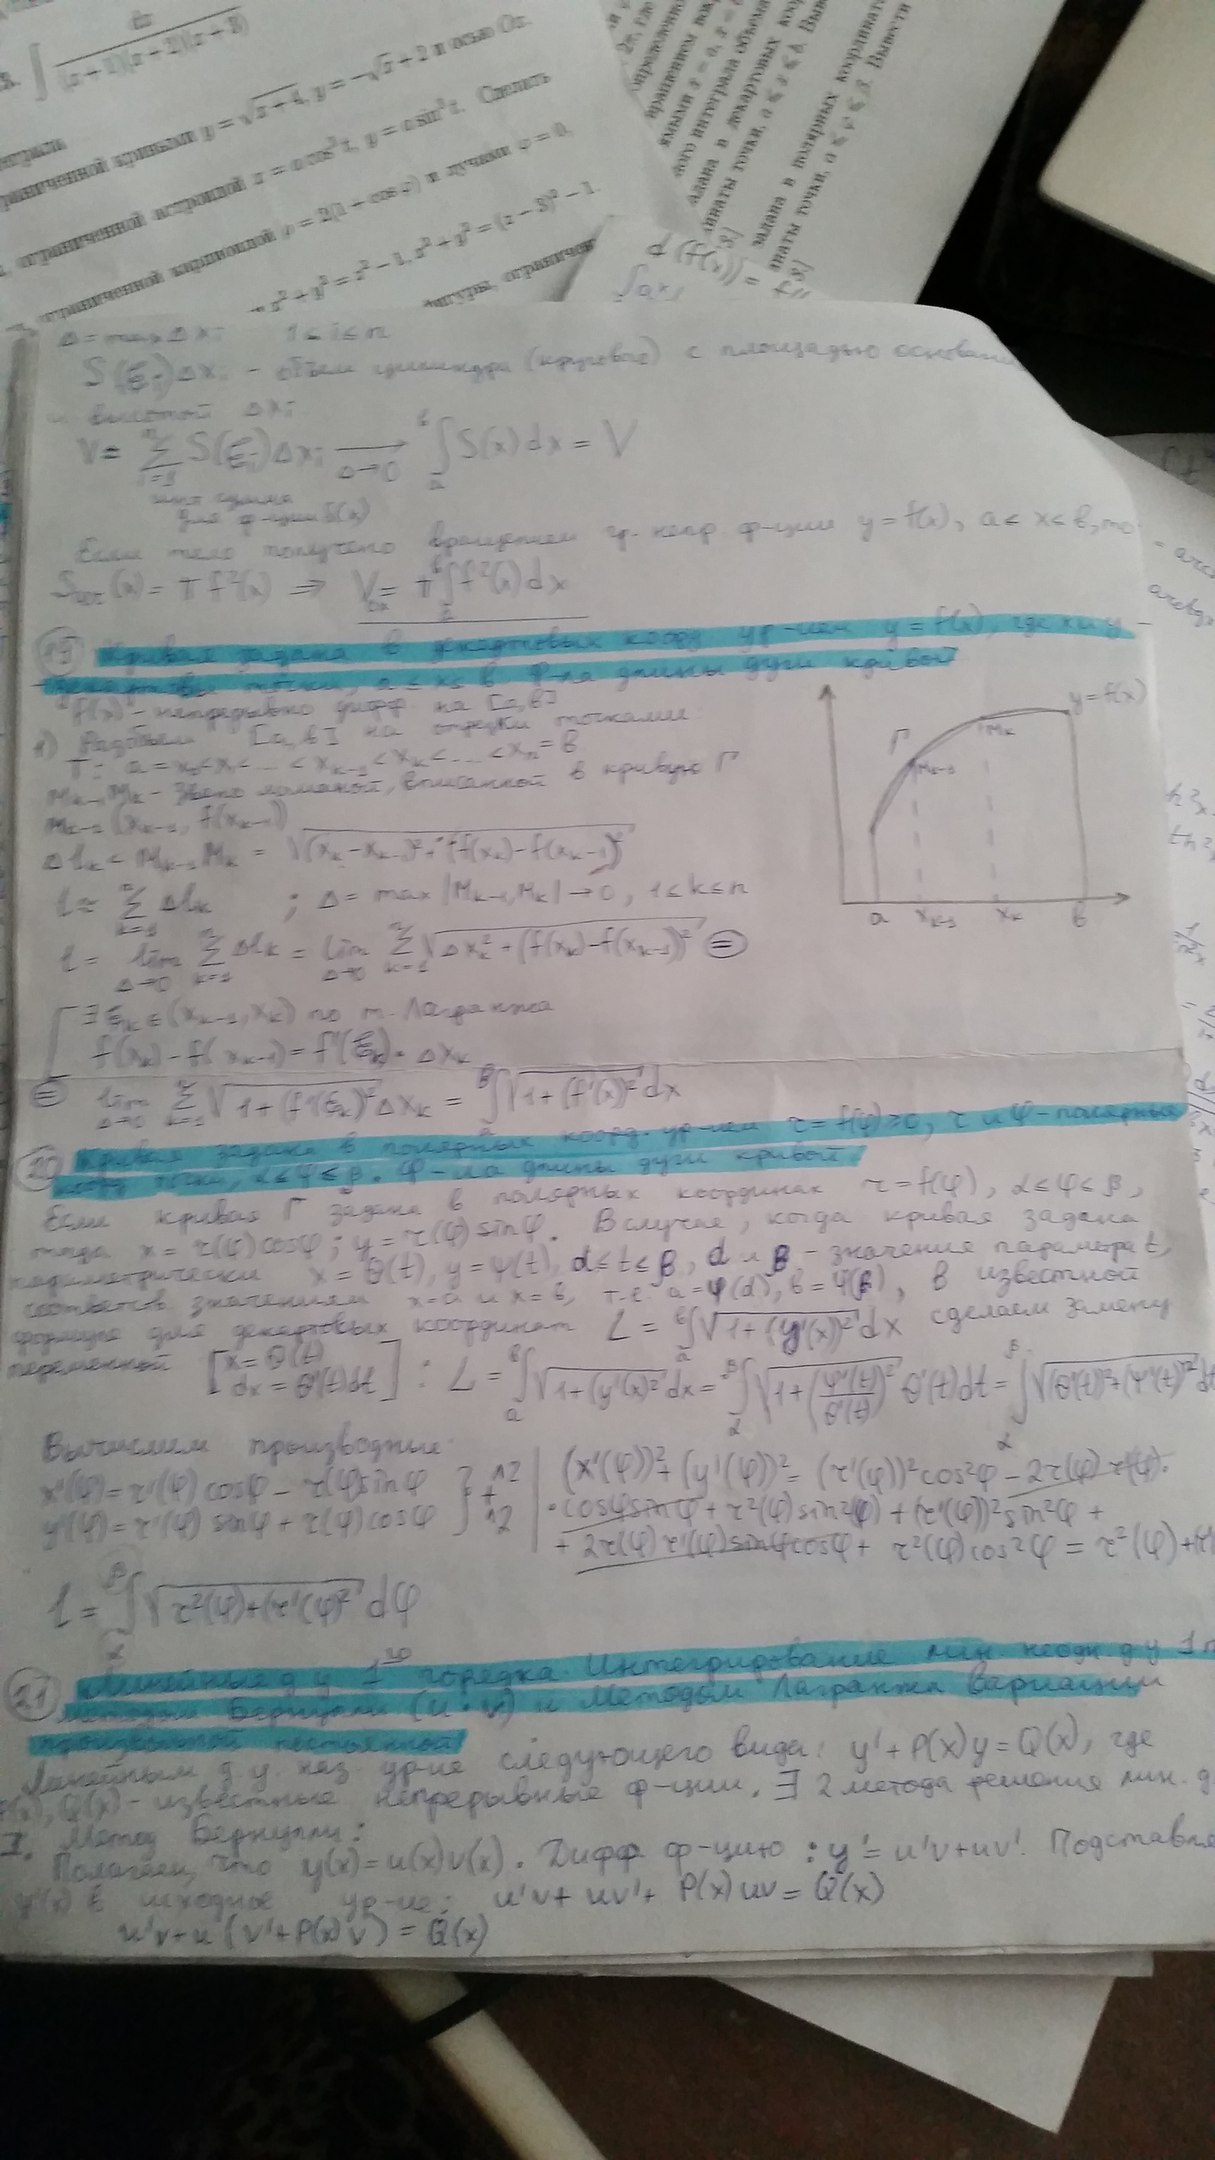 ∫ dx / (x+1)(x+2)(x+3)
ограниченной кривыми y = √x+4, y = −√x+2 и осью Ox.
ограниченной астроидой x = a cos³ t, y = a sin³ t. Сделать
ограниченной кардиоидой ρ = 2(1 + cos φ) и лучами φ = 0,
x² + y² = z² − 1, x² + y² = (z − 3)² − 1.
фигуры, ограничен
задана в полярных координат
Δ = max Δxi 1 ≤ i ≤ n
S(ξi)Δxi - объем цилиндра (кругового) с площадью основания
и высотой Δxi
V ≈ Σ S(ξi)Δxi → ∫ S(x)dx = V
i=1 Δ→0 a
инт сумма
для ф-ции S(x)
Если тело получено вращением гр. непр ф-ции y = f(x), a ≤ x ≤ b, то
(x) = π f²(x) ⇒ Vox = π∫f²(x)dx
19 Кривая задана в декартовых коорд ур-ием y = f(x), где x и y -
декартовы точки, a ≤ x ≤ b. Ф-ла длины дуги кривой
"f(x)" - непрерывно дифф на [a,b]
1) Разобьем [a,b] на отрезки точками:
T: a = x₀<x₁<...<xk-1<xk<...<xn = b
Mk-1Mk - звено ломаной, вписанной в кривую Г
Mk-1(xk-1, f(xk-1))
Δlk < Mk-1Mk = √(xk-xk-1)²+(f(xk)-f(xk-1))²
l ≈ Σ Δlk ; Δ = max |Mk-1,Mk| → 0, 1 ≤ k ≤ n
l = lim Σ Δlk = lim Σ √Δxk²+(f(xk)-f(xk-1))² =
y=f(x)
Г Mk-1 Mk
a xk-1 xk b
∃ ξk ∈ (xk-1, xk) по т. Лагранжа
f(xk)-f(xk-1) = f'(ξk)·Δxk
= lim Σ √1+(f'(ξk))² Δxk = ∫√1+(f'(x))² dx
20 Кривая задана в полярных коорд. ур-ием r = f(φ) ≥ 0, r и φ - полярные
коорд точки, α ≤ φ ≤ β. Ф-ла длины дуги кривой
Если кривая Г задана в полярных координах r = f(φ), α ≤ φ ≤ β,
тогда x = r(φ)cosφ; y = r(φ)sinφ. В случае, когда кривая задана
параметрически x = θ(t), y = ψ(t), α ≤ t ≤ β, α и β - значения параметра t,
соответств. значениям x=a и x=b, т.е. a=φ(α), b=φ(β), в известной
формуле для декартовых координат L = ∫√1+(y'(x))² dx сделаем замену
переменной [x=θ(t) dx=θ'(t)dt] : L = ∫√1+(y'(x))² dx = ∫√1+(ψ'(t)/θ'(t))² θ'(t)dt = ∫√(θ'(t))²+(ψ'(t))² dt
Вычислим производные:
x'(φ) = r'(φ)cosφ - r(φ)sinφ } ^2 | (x'(φ))²+(y'(φ))² = (r'(φ))²cos²φ - 2r(φ) r'(φ)·
y'(φ) = r'(φ) sinφ + r(φ)cosφ } + ^2 | ·cosφsinφ + r²(φ)sin²φ) + (r'(φ))²sin²φ +
+ 2r(φ)r'(φ)sinφcosφ + r²(φ)cos²φ = r²(φ)+(r'
l = ∫√r²(φ)+(r'(φ))² dφ
21 Линейные д у 1го порядка. Интегрирование лин. неодн. д у 1 п
методом Бернулли (u·v) и Методом Лагранжа Вариации
произвольной постоянной
Линейным д.у. наз. ур-ие следующего вида: y'+P(x)y=Q(x), где
P(x), Q(x) - известные непрерывные ф-ции. ∃ 2 метода решения лин. д.
I. Метод Бернулли:
Полагаем, что y(x)=u(x)v(x). Дифф ф-цию : y'=u'v+uv'. Подставля
y'(x) в исходное ур-ие: u'v+uv'+ P(x)uv = Q(x)
u'v+u(v'+P(x)v) = Q(x)